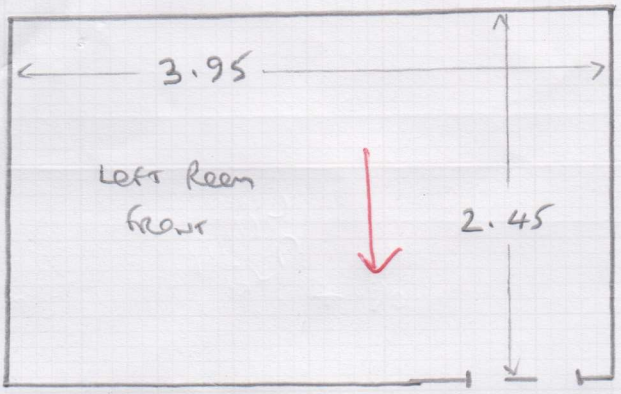 3.95
Left Room
Front
2.45